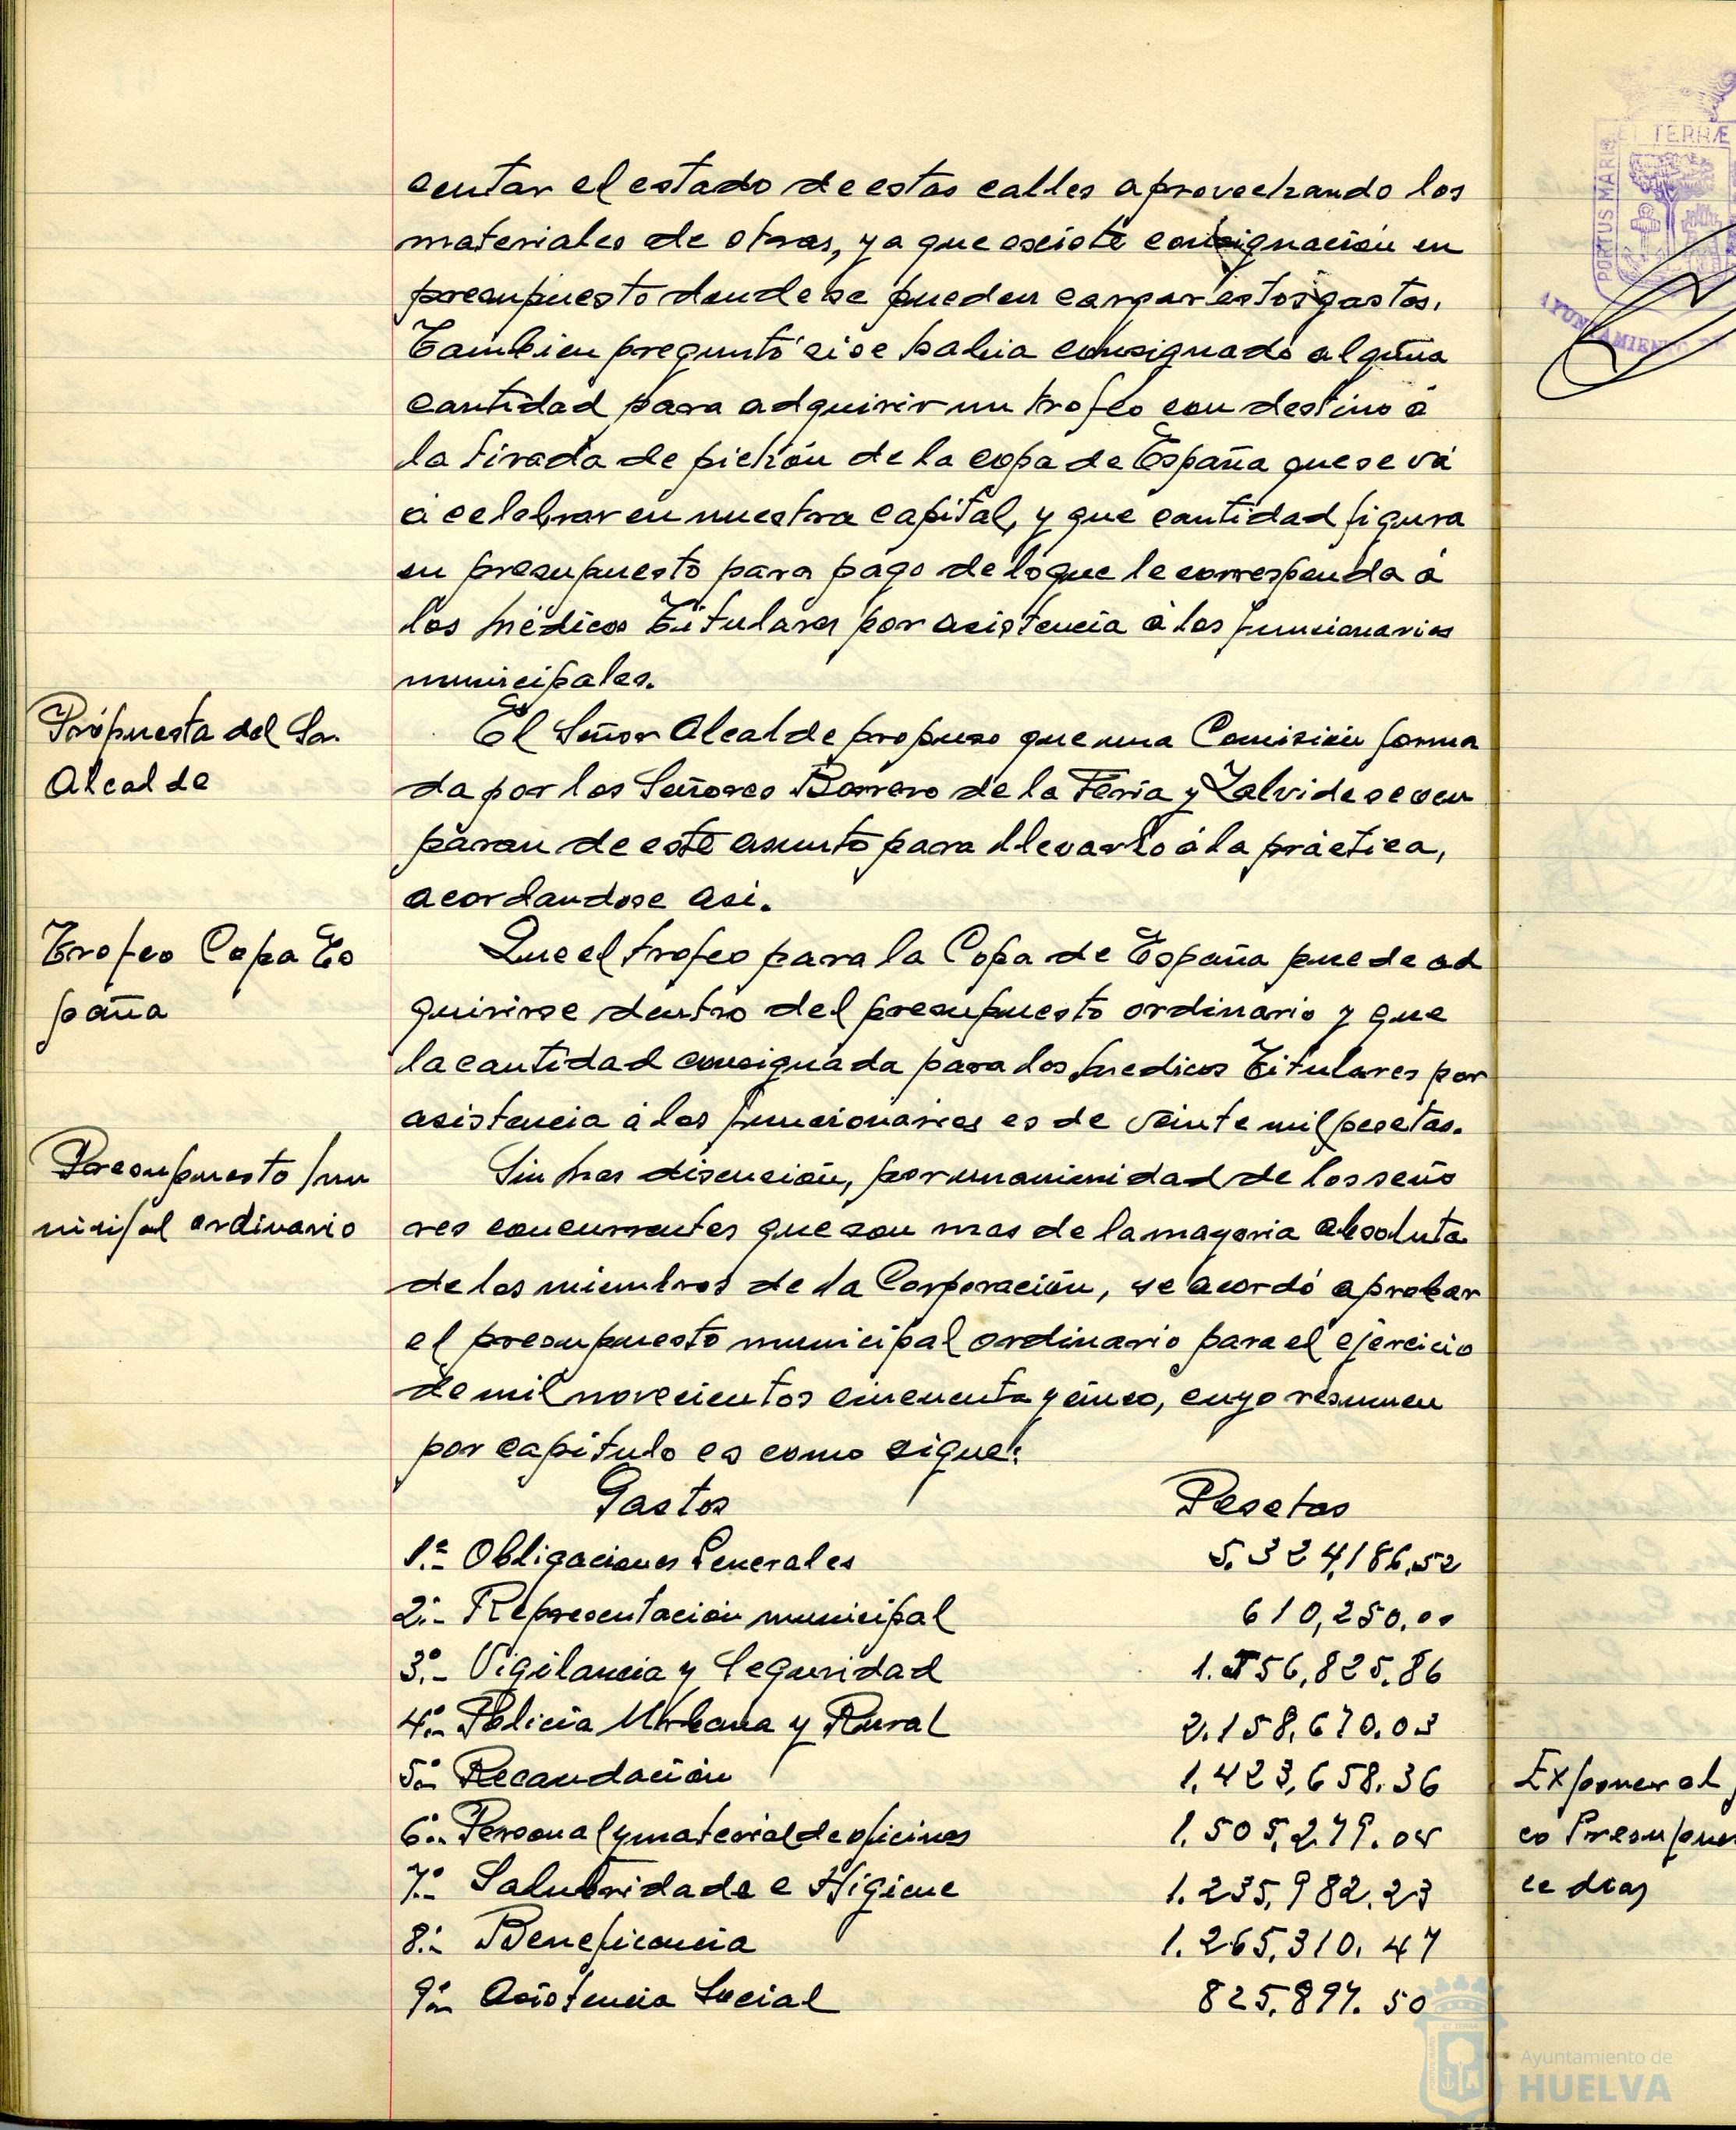 centar el estado de estas calles aprovechando los
materiales de otras, ya que existe consignación en
presupuesto donde se pueden cargar estos gastos.
Tambien preguntó si se habia consignado alguna
cantidad para adquirir un trofeo con destino á
la tirada de pichón de la copa de España que se vá
á celebrar en nuestra capital, y que cantidad figura
en presupuesto para pago de lo que le corresponda á
los Médicos Titulares por asistencia á los funcionarios
municipales.
Propuesta del Sr.
Alcalde
El Señor Alcalde propuso que una Comisión forma
da por los Señores Borrero de la Feria y Zalvide se ocu
paran de este asunto para llevarlo á la práctica,
acordandose asi.
Trofeo Copa Es
paña
Que el trofeo para la Copa de España puede ad
quirirse dentro del presupuesto ordinario y que
la cantidad consignada para los Medicos Titulares por
asistencia á los funcionarios es de veinte mil pesetas.
Presupuesto mu
nicipal ordinario
Sin mas discusión, por unanimidad de los seño
res concurrentes que son mas de la mayoria absoluta
de los miembros de la Corporación, se acordó aprobar
el presupuesto municipal ordinario para el ejercicio
de mil novecientos cincuenta y cinco, cuyo resumen
por capitulo es como sigue:
Gastos Pesetas
1.º Obligaciones Generales 5.324,186,52
2.º- Representación municipal 610,250.00
3.º- Vigilancia y Seguridad 1.556,825.86
4.º- Policia Urbana y Rural 2.158,670.03
5.º- Recaudación 1.423,658.36
6.º- Personal y material de oficinas 1.505,279.05
7.º- Salubridade e Higiene 1.235,982.23
8.º- Beneficencia 1.265,310.47
9.º- Asistencia Social 825,897.50
ET TERRÆ
PORTUS MARIS
AYUNTAMIENTO DE
Exponer al
co Presupues
ce dias
Ayuntamiento de
HUELVA